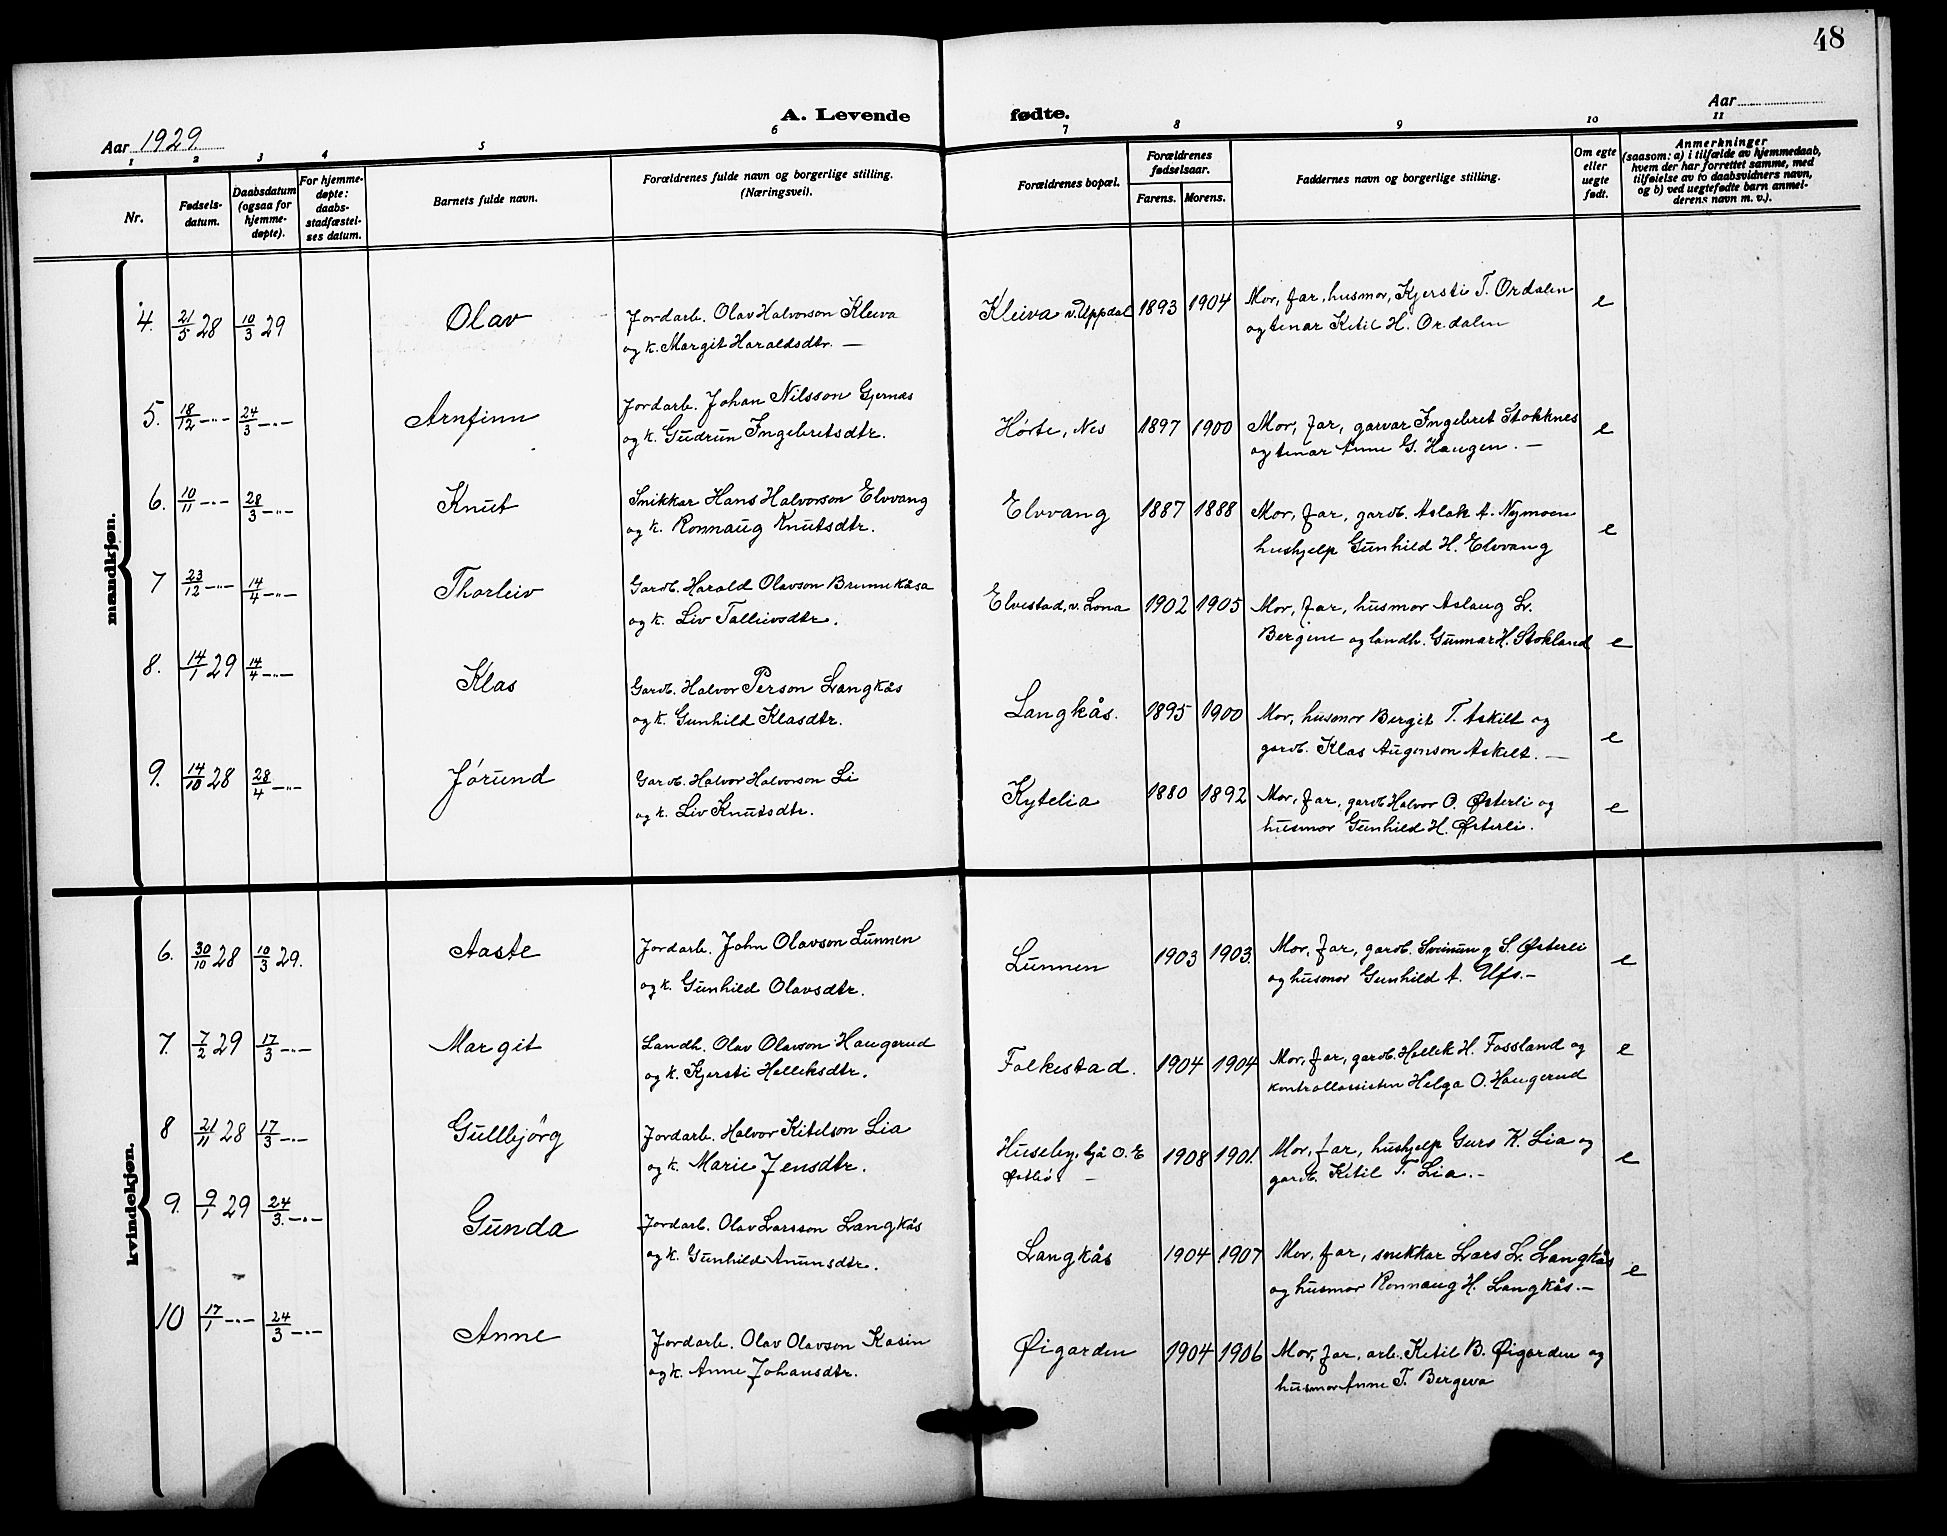 48
A. Levende fødte.
Aar 1929.
Aar
1 2 3 4 5 6 7 8 9 10 11
Nr.
Fødsels-
datum.
Daabsdatum
(ogsaa for
hjemme-
døpte).
For hjemme-
døpte:
daabs-
stadfæstel-
ses datum.
Barnets fulde navn.
Forældrenes fulde navn og borgerlige stilling.
(Næringsvei).
Forældrenes bopæl.
Forældrenes
fødselsaar.
Farens. Morens.
Faddernes navn og borgerlige stilling.
Om egte
eller
uegte
født.
Anmerkninger
(saasom: a) i tilfælde av hjemmedaab,
hvem der har forrettet samme, med
tilføielse av to daabsvidners navn,
og b) ved uegtefødte barn anmel-
derens navn m. v.).
mandkjøn.
4. 21/5 28 10/3 29 Olav Jordarb. Olav Halvorson Kleiva Kleiva v. Uppdal 1893 1904 Mor, far, husmor, Kjersti T. Ordalen e
og k. Margit Haraldsdtr. — og tenar Ketil H. Ordalen
5. 18/12 -"- 24/3 -"- Arnfinn Jordarb. Johan Nilsson Gjernas Hørte, Nes 1897 1900 Mor, far, garvar Ingebret Stokknes e
og k. Gudrun Ingebretsdtr. og tenar Anne G. Haugen. —
6. 10/11 -"- 28/3 -"- Knut Snikkar Hans Halvorson Elvvang Elvvang 1887 1888 Mor, far, gardb. Aslak A. Nymoen e
og k. Ronnaug Knutsdtr. hushjelp Gunhild H. Elvvang
7 23/12 -"- 14/4 -"- Thorleiv Gardb. Harald Olavson Brunekåsa Elvestad, v. Lona 1902 1905 Mor, far, husmor Aslaug L. e
og k. Liv Talleivsdtr. Bergene og landh. Gunnar H. Stokland
8. 14/1 29 14/4 -"- Klas Gardb. Halvor Person Langkås Langkås. 1895 1900 Mor, husmor Bergit T. Askilt og e
og k. Gunhild Klasdtr. gardb. Klas Augonson Askilt. —
9. 14/10 28 28/4 -"- Jørund Gardb. Halvor Halvorson Li Kytelia 1880 1892 Mor, far, gardb Halvor O. Østerli og e
og k. Liv Knutsdtr. husmor Gunhild H. Østerli.
kvindekjøn.
6. 30/10 28 10/3 29. Aaste Jordarb. John Olavson Lunnen Lunnen 1903 1903. Mor, far, gardb. Sveinung S. Østerli e
og k. Gunhild Olavsdtr. og husmor Gunhild A. Ufs. —
7. 7/2 29 17/3 -"- Margit Landh. Olav Olavson Haugerud Folkestad. 1904 1904 Mor, far, gardb. Hellek H. Fossland og e
og k. Kjersti Helleksdtr. kontrollassisten Helga O. Haugerud
8 21/11 28 17/3 -"- Gullbjørg Jordarb. Halvor Kitelson Lia Huseby, hjå O. E 1908 1901. Mor, far, hushjelp Guro K. Lia og e
og k. Marie Jensdtr. Østbø — gardb. Kitil T. Lia. —
9. 9/1 29 24/3. -"- Gunda Jordarb. Olav Larsson Langkås Langkås 1904 1907 Mor, far, snekkar Lars L. Langkås e
og k. Gunhild Anunsdtr. og husmor Ronnaug H. Langkås. —
10 17/1 -"- 24/3 -"- Anne Jordarb. Olav Olavson Kasin Øigarden 1904 1906 Mor, far, arb. Ketil B. Øigarden og
og k. Anne Johansdtr. husmor Anne T. Bergeva